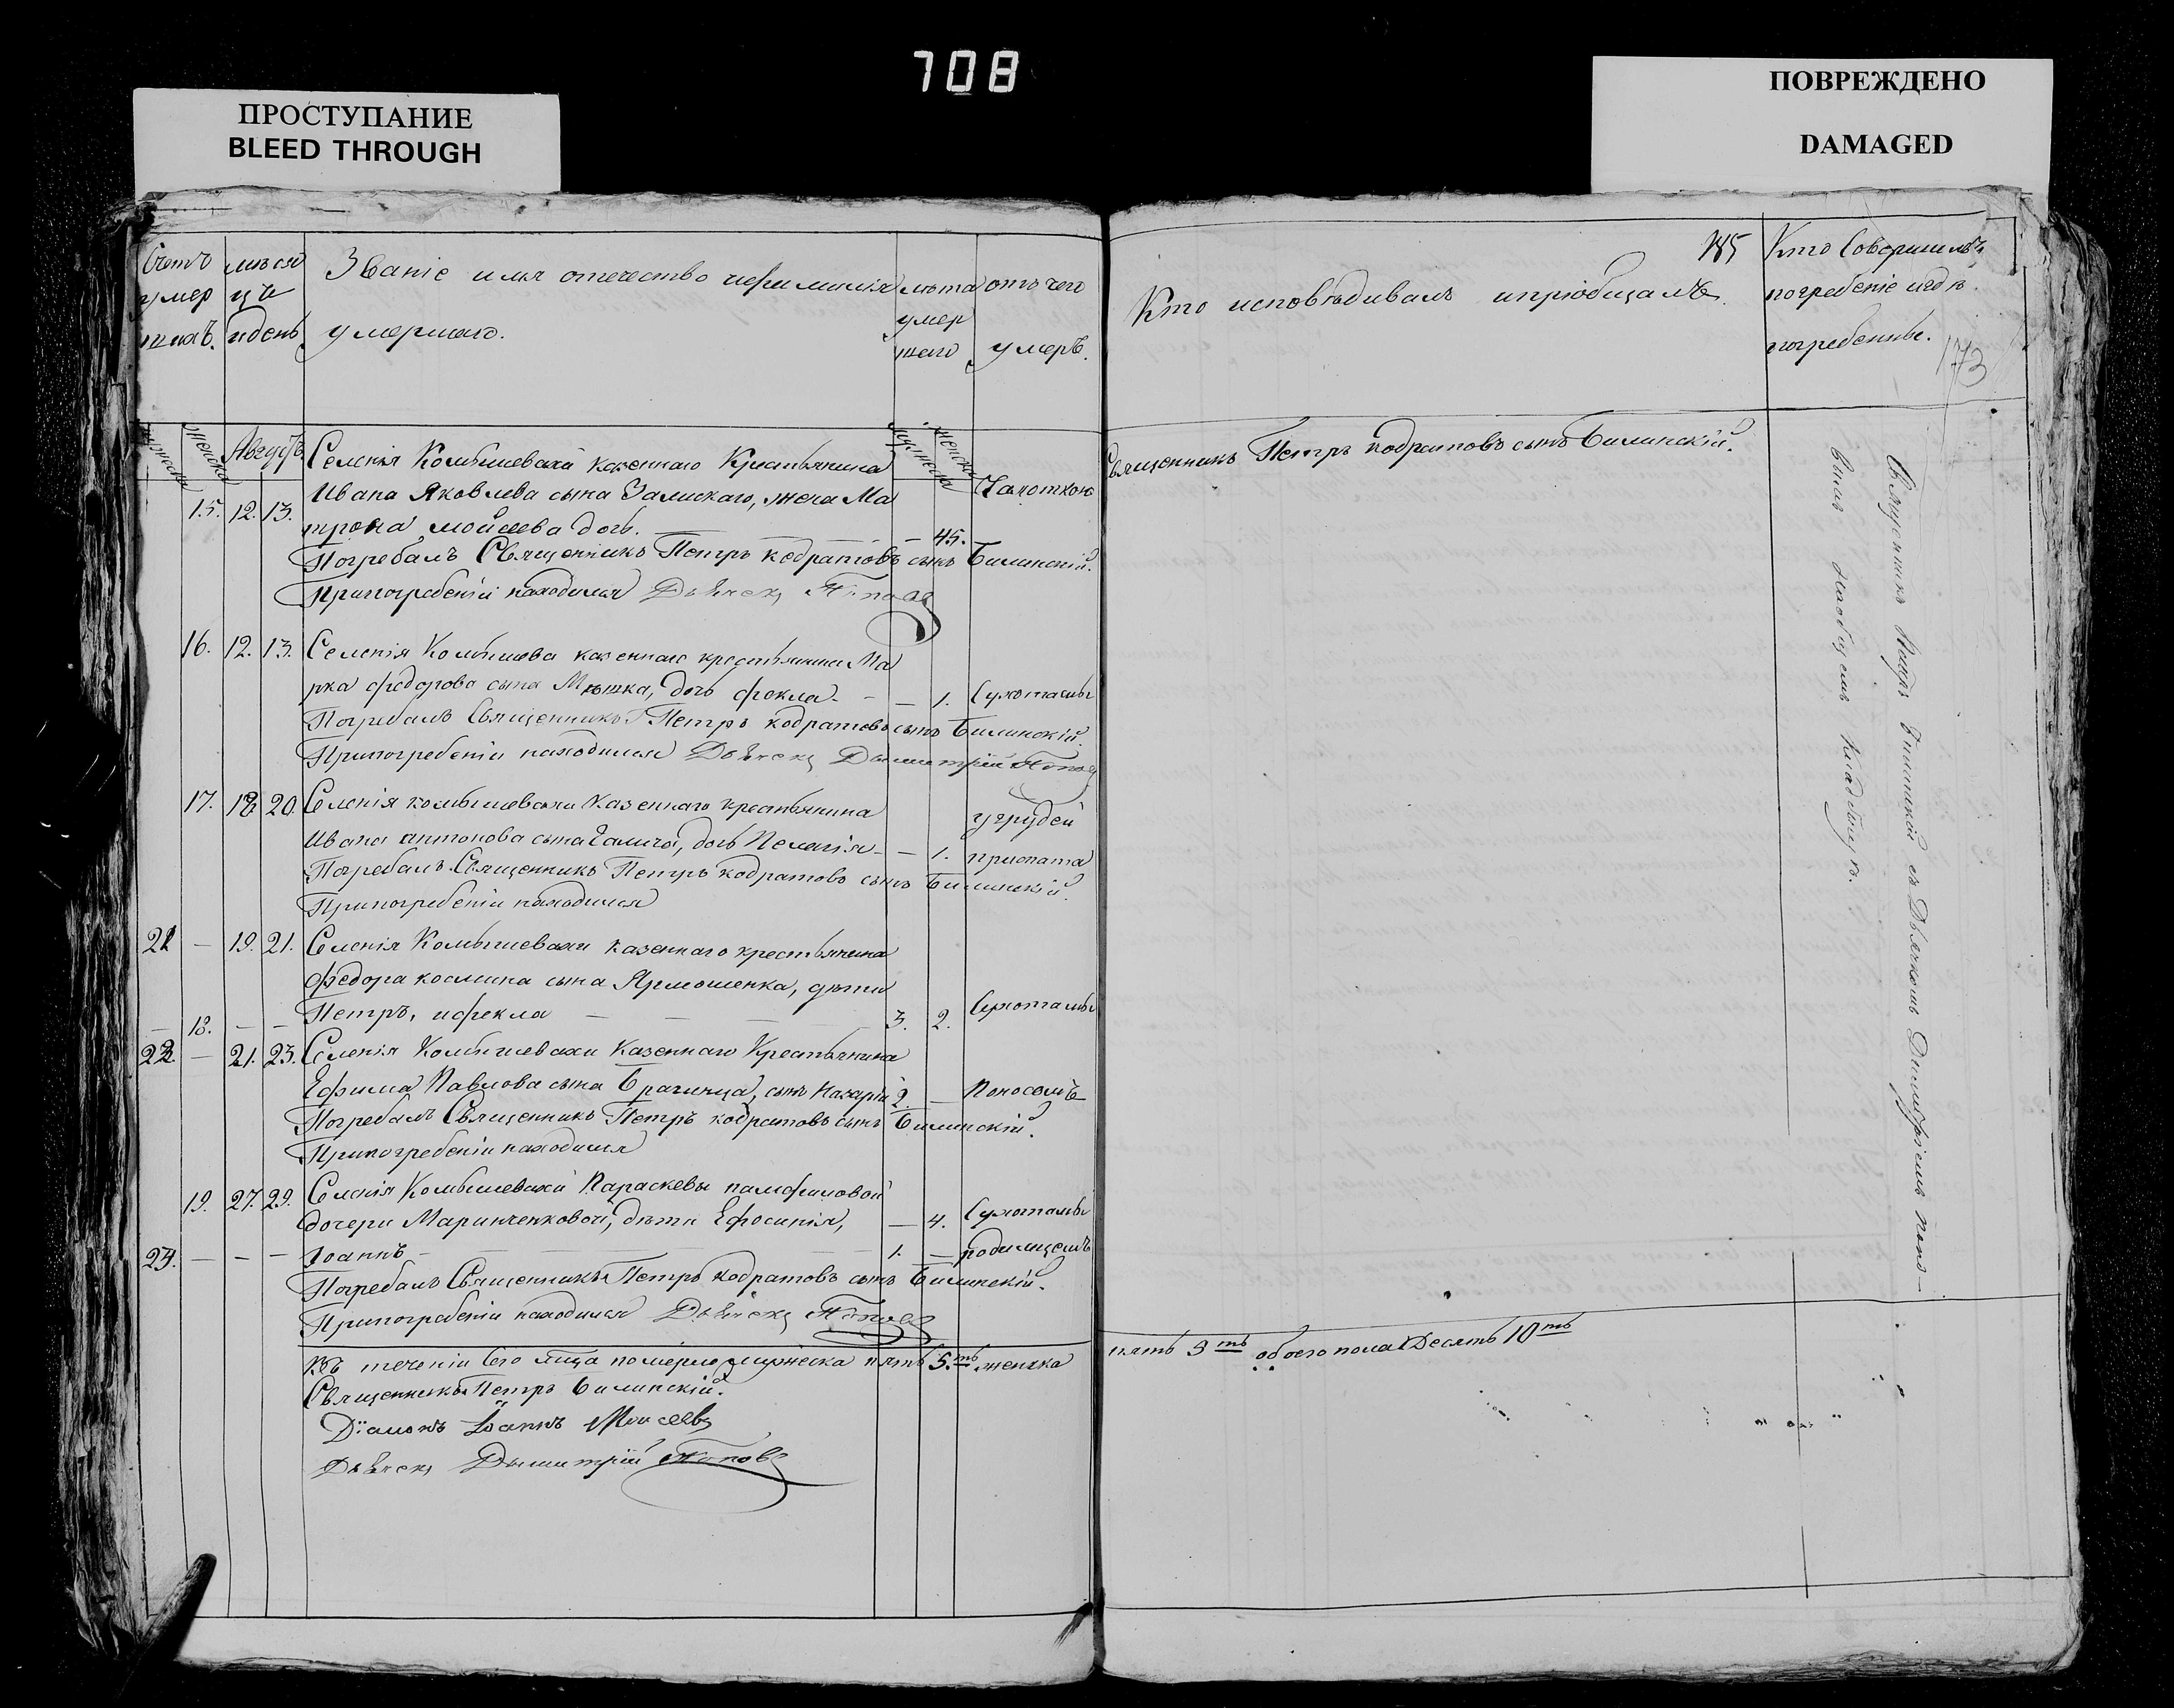 708
ПРОСТУПАНИЕ
BLEED THROUGH
ПОВРЕЖДЕНО
DAMAGED
Счетъ умер шихъ.
мѣся цъ идень
Званіе имя отечество ифамилія умершаго.
лѣта умер шаго
отъ чего умеръ.
мужеска
женска
Августъ.
мужеска
женска
Селенія Комышевахи казеннаго Крестьянина
15. 12. 13. Ивана Яковлева сына Залискаго, жена Ма Чахоткою
трона мойсеева дочь. — — — — 45.
Погребалъ Священникъ Петръ кодратовъ сынъ Билинскій.
Припогребеніи находился Дьячекъ Поповъ
16. 12. 13. Селенія Комышеваха казеннаго крестьянина Ма
рка федорова сына Мѣшка, дочь фекла — — 1. Сухоткамы
Погребалъ Священникъ Петръ кодратовъ сынъ Билинскій.
Припогребеніи находился Дьячекъ Дымитрій Поповъ
17. 18 20. Селенія комышевахи казеннаго крестьянина угрудей
Ивана антонова сына Галича, дочь Пелагія — — 1. приспата
Погребалъ Священникъ Петръ кодратовъ сынъ Билинскій.
Припогребеніи находился
21 — 19. 21. Селенія Комышевахи казеннаго крестьянина
федора космина сына Ярмошенка, дѣти
— 18. — — Петръ, ифекла — — — — 3. 2. Сухотамы
22. — 21. 23. Селенія Комышевахи казеннаго Крестьянина
Ефима Павлова сына Брагинца, сынъ Назарій 2. — Поносомъ
Погребалъ Священникъ Петръ кодратовъ сынъ Билинскій.
Припогребеніи находился
19. 27. 29. Селенія Комышевахи Параскевы памфиловой
дочери Маринченковой, дѣти Ефосинія, — 4. Сухотамы
23. — — — Іоаннъ — 1. — родимцемъ
Погребалъ Священникъ Петръ кодратовъ сынъ Билинскій.
Припогребеніи находился Дьячекъ Поповъ
Въ теченіи Сего мѣца померло мужеска пять 5.ть женска
Священникъ Петръ Билинскій.
Діаконъ Іоаннъ Моисеевъ
Дьячекъ Дымитрій Поповъ
185
Кто исповѣдивалъ ипріобщалъ.
Кто Совершилъ погребеніе игдѣ погребенные.
173
Священникъ Петръ кодратовъ сынъ Билинскій.
Священникъ Билинскій съ Дьячкомъ Димитріемъ
Наобщемъ Кладбищѣ.
пять 5 ть обоего пола Десять 10 ть